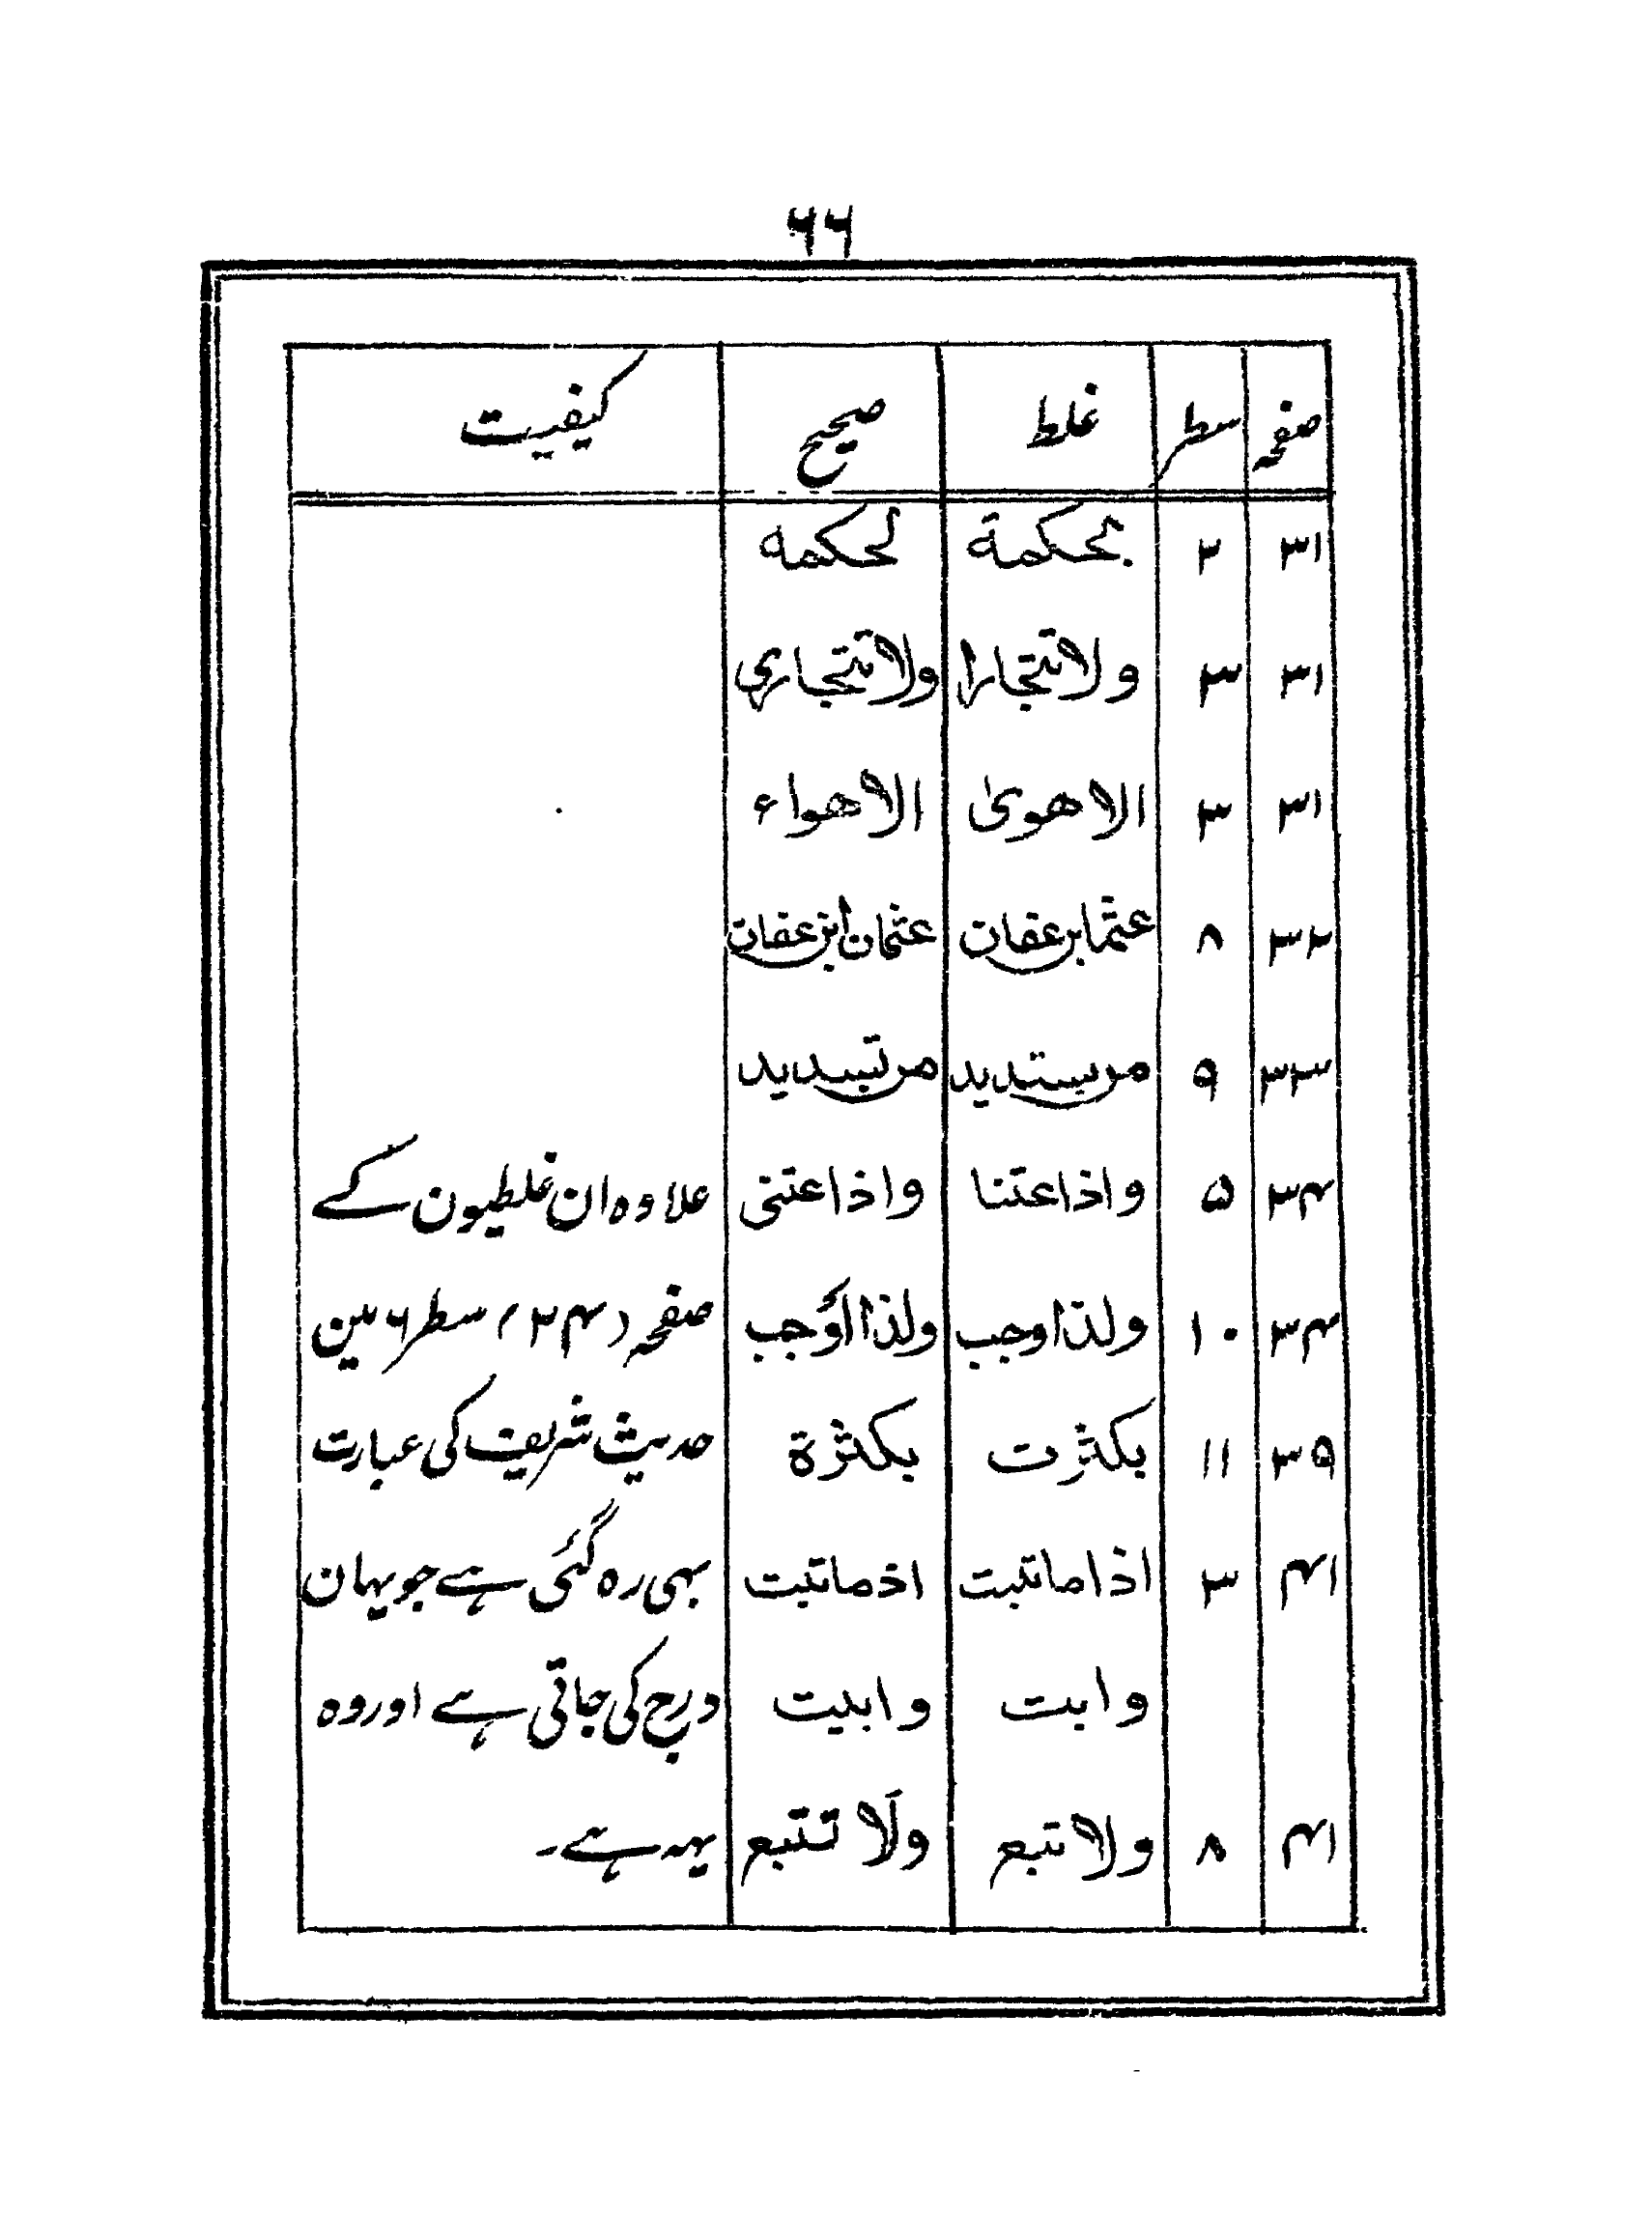 ۶۶
صفحہ سطر غلط صحیح کیفیت
۳۱ ۲ بحکمة لحکمه
۳۱ ۳ ولا تتجارا ولا تتجاری
۳۱ ۳ الاهویٰ الاهواء
۳۲ ۸ عثما بن عفان عثمان ابن عفان
۳۳ ۹
۳۴ ۵ واذا عتنا واذا عتنی علاوہ ان غلطیون کے
۳۴ ۱۰ ولذا اوجب ولذا أوجب صفحہ ۴۲ سطر ۶ مین
۳۵ ۱۱ بکثرت بکثرة حدیث شریف کی عبارت
۴۱ ۳ اذا ما تبت اذ ما تبت بہی رہ گئی ہے جو یہان
وابت وابیت درج کی جاتی ہے اور وہ
۴۱ ۸ ولا تبع ولَا تتبع یہہ ہے۔